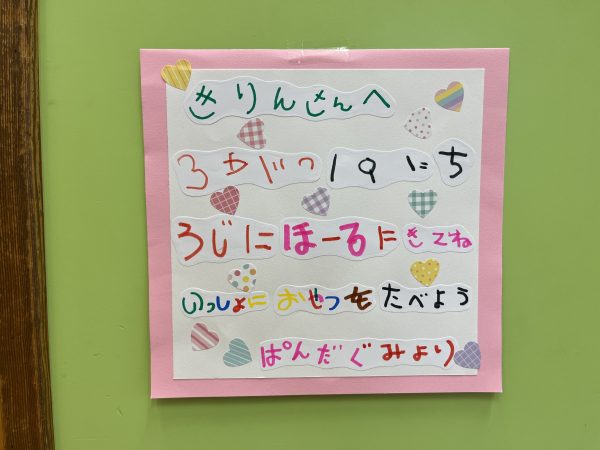 きりんさんへ
3がつ19にち
3じにほーるにきてね
いっしょにおやつをたべよう
ぱんだぐみより